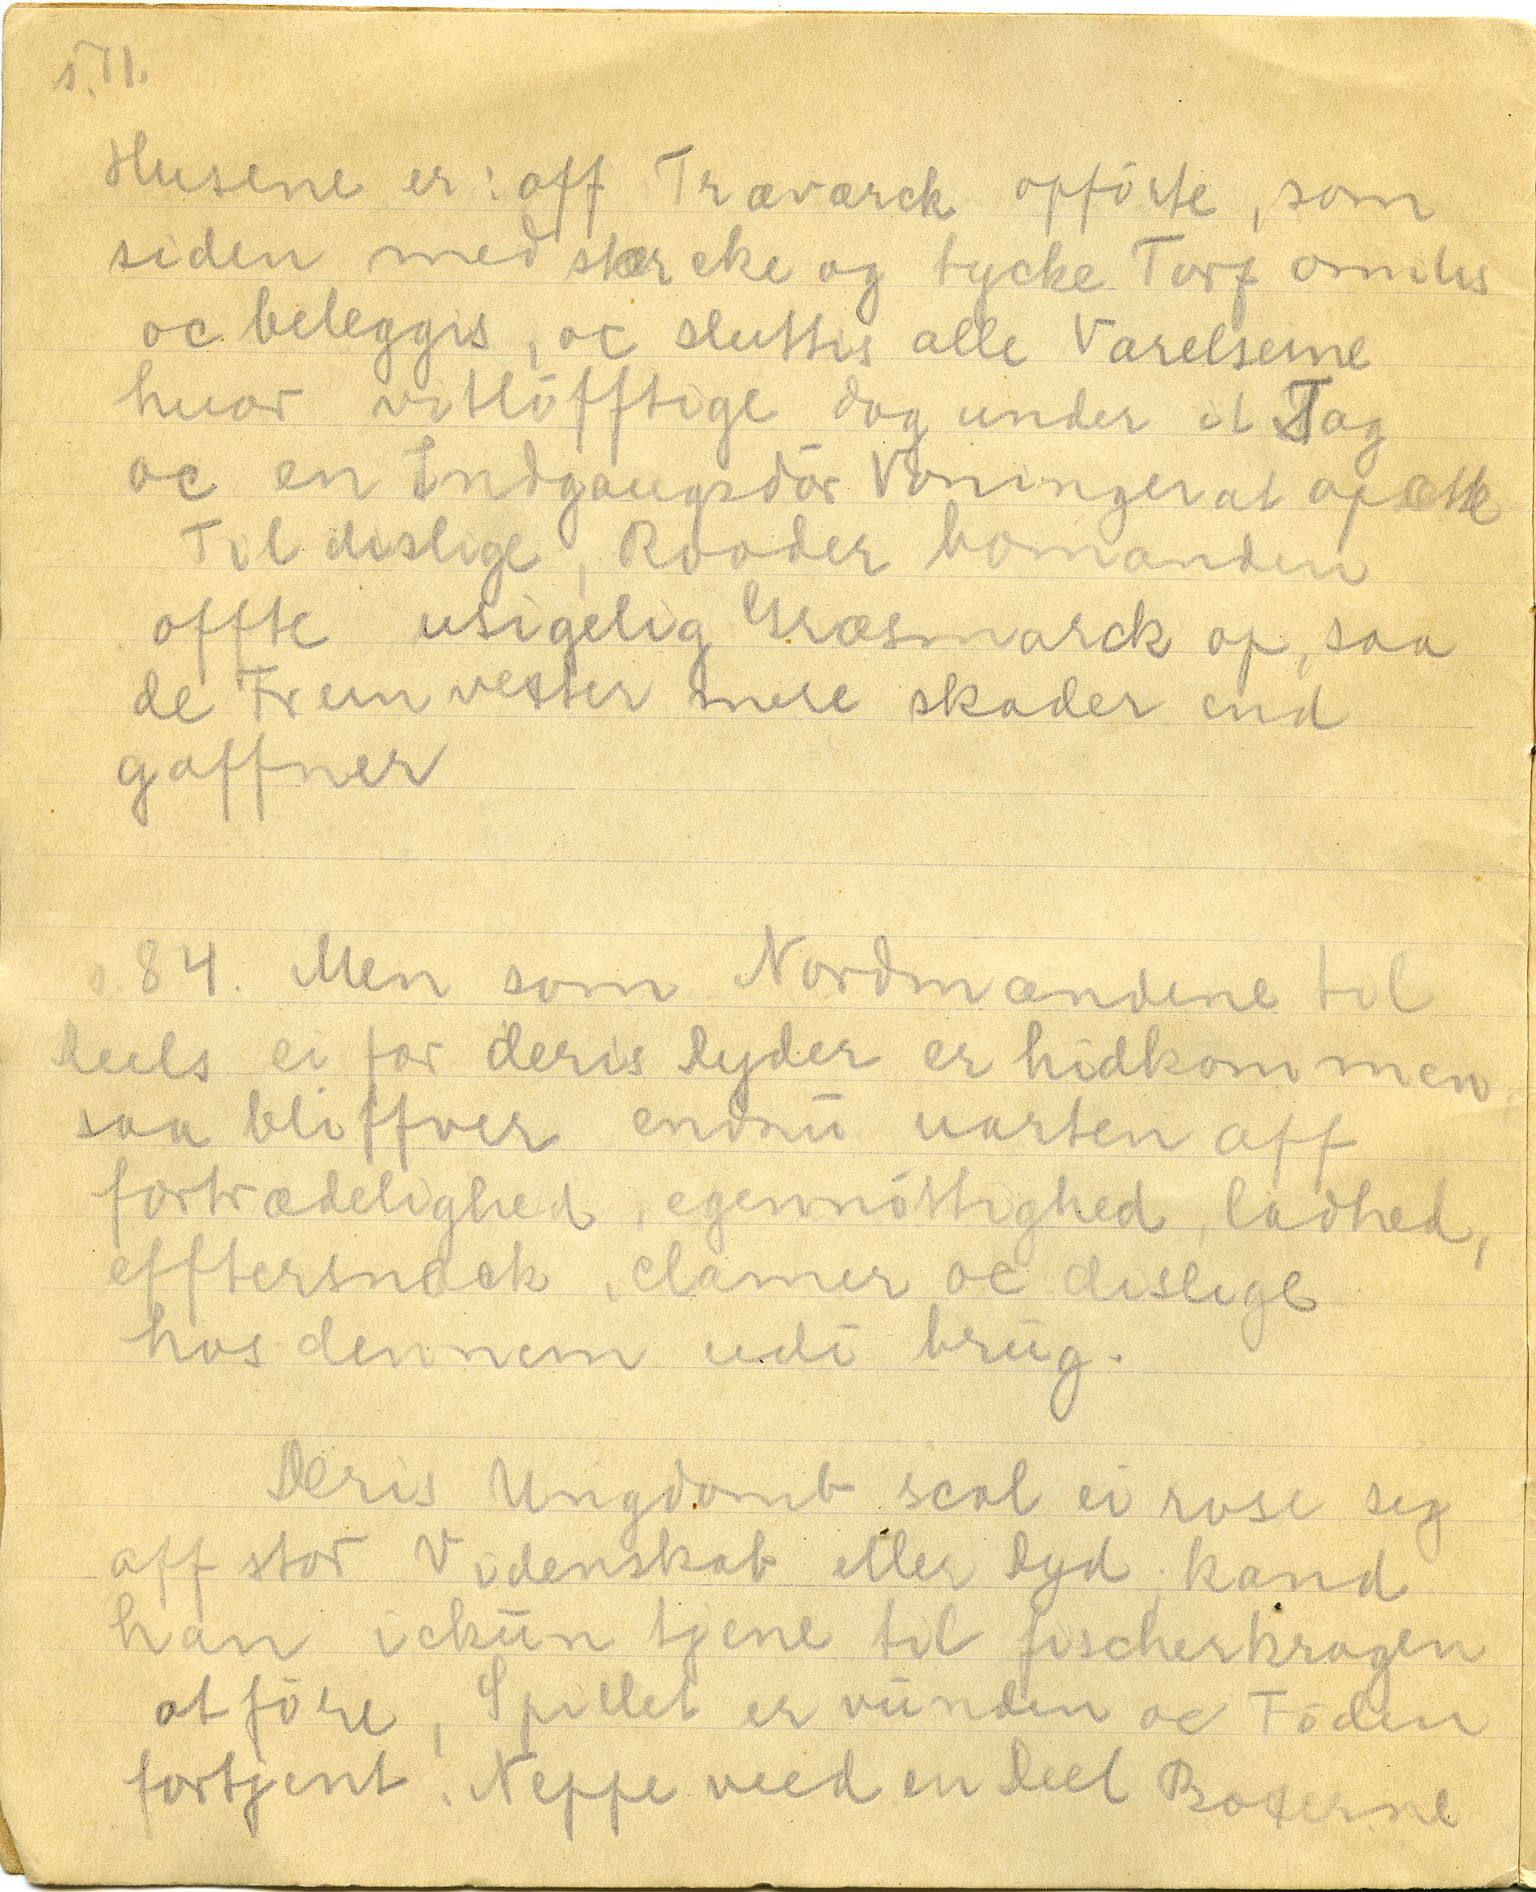 s. 71.
Husene er : aff Træværck opförte, som
siden med stærcke og tycke Torf
oc beleggis, oc sluttis alle Værelserne
huor vitlöfftige dog under et Tag
oc en Indgangsdör Voninger at opsætte
Til dislige, Rooder bomanden
offte usigelig Græsmarck op, saa
de Fremvester mere skader end
gaffner
s. 84. Men som Nordmændene til
deels ei for deris dyder er hidkommen,
saa bliffver endnū uarten aff
fortrædelighed, egennöttighed, ladhed,
efftersnack, clamer oc deslige
hos dennem udi brūg.
Deris Ungdomb scal ei rose seg
aff stor Videnskab eller dyd, kand
han ickūn tjene til fischerkragen
at före, Spillet er vūnden oc Föden
fortjent. Neppe veed en deel Boterne